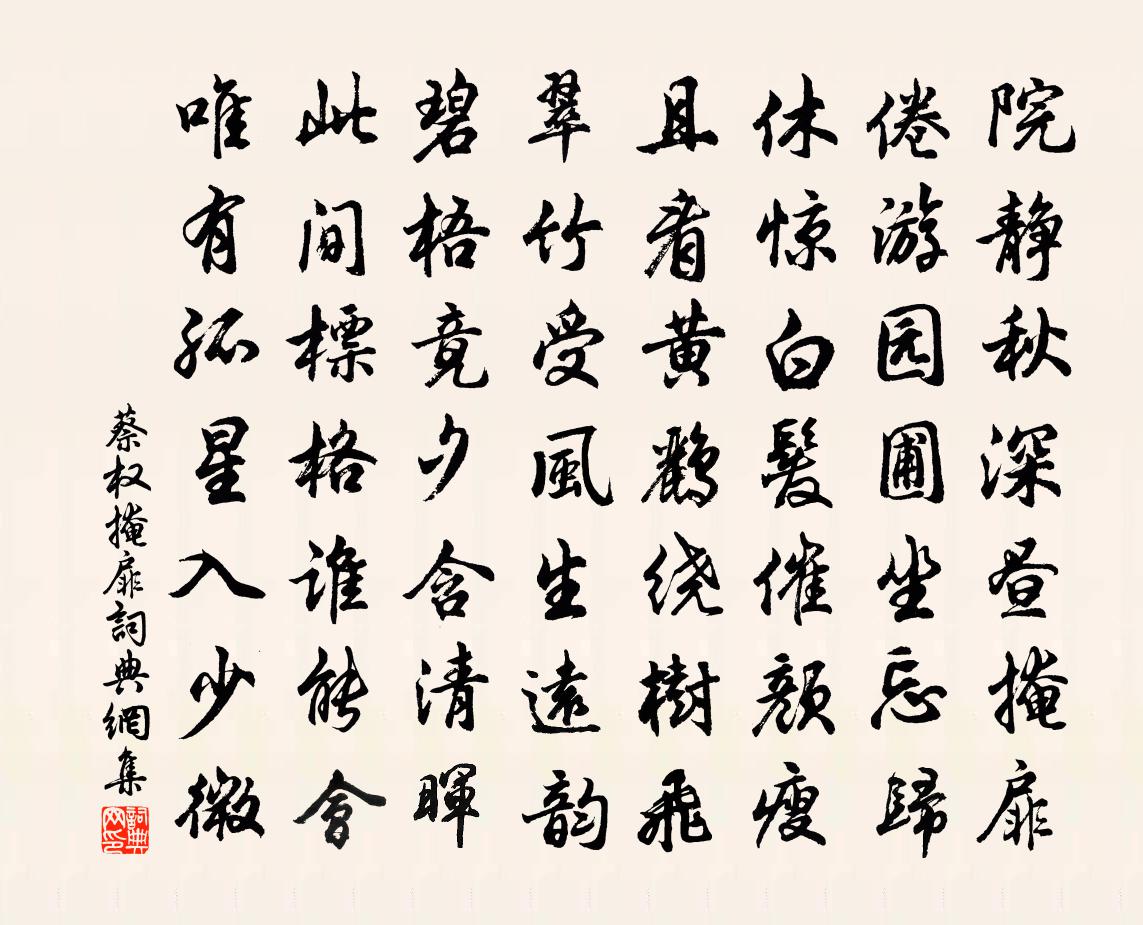 院静秋深昼掩扉
倦游园圃坐忘歸
休惊白髮催颜瘦
且看黄鹂绕樹飛
翠竹受風生遠韵
碧梧竟夕含清暉
此间標格谁能會
唯有孤星入少微
蔡权掩扉詞典網集
詞典网印